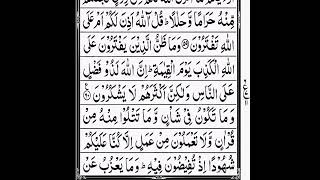 مِّنۡهُ حَرَامًا وَّحَلٰلًا ؕ قُلۡ آٰللّٰهُ اَذِنَ لَكُمۡ اَمۡ عَلَى
اللّٰهِ تَفۡتَرُوۡنَ ﴿۵۹﴾ وَمَا ظَنُّ الَّذِيۡنَ يَفۡتَرُوۡنَ عَلَى
اللّٰهِ الۡكَذِبَ يَوۡمَ الۡقِيٰمَةِ ؕ اِنَّ اللّٰهَ لَذُوۡ فَضۡلٍ
عَلَى النَّاسِ وَلٰكِنَّ اَكۡثَرَهُمۡ لَا يَشۡكُرُوۡنَ ﴿۶۰﴾
وَمَا تَكُوۡنُ فِىۡ شَاۡنٍ وَّمَا تَتۡلُوۡا مِنۡهُ مِنۡ
قُرۡاٰنٍ وَّلَا تَعۡمَلُوۡنَ مِنۡ عَمَلٍ اِلَّا كُنَّا عَلَيۡكُمۡ
شُهُوۡدًا اِذۡ تُفِيۡضُوۡنَ فِيۡهِ ؕ وَمَا يَعۡزُبُ عَنۡ